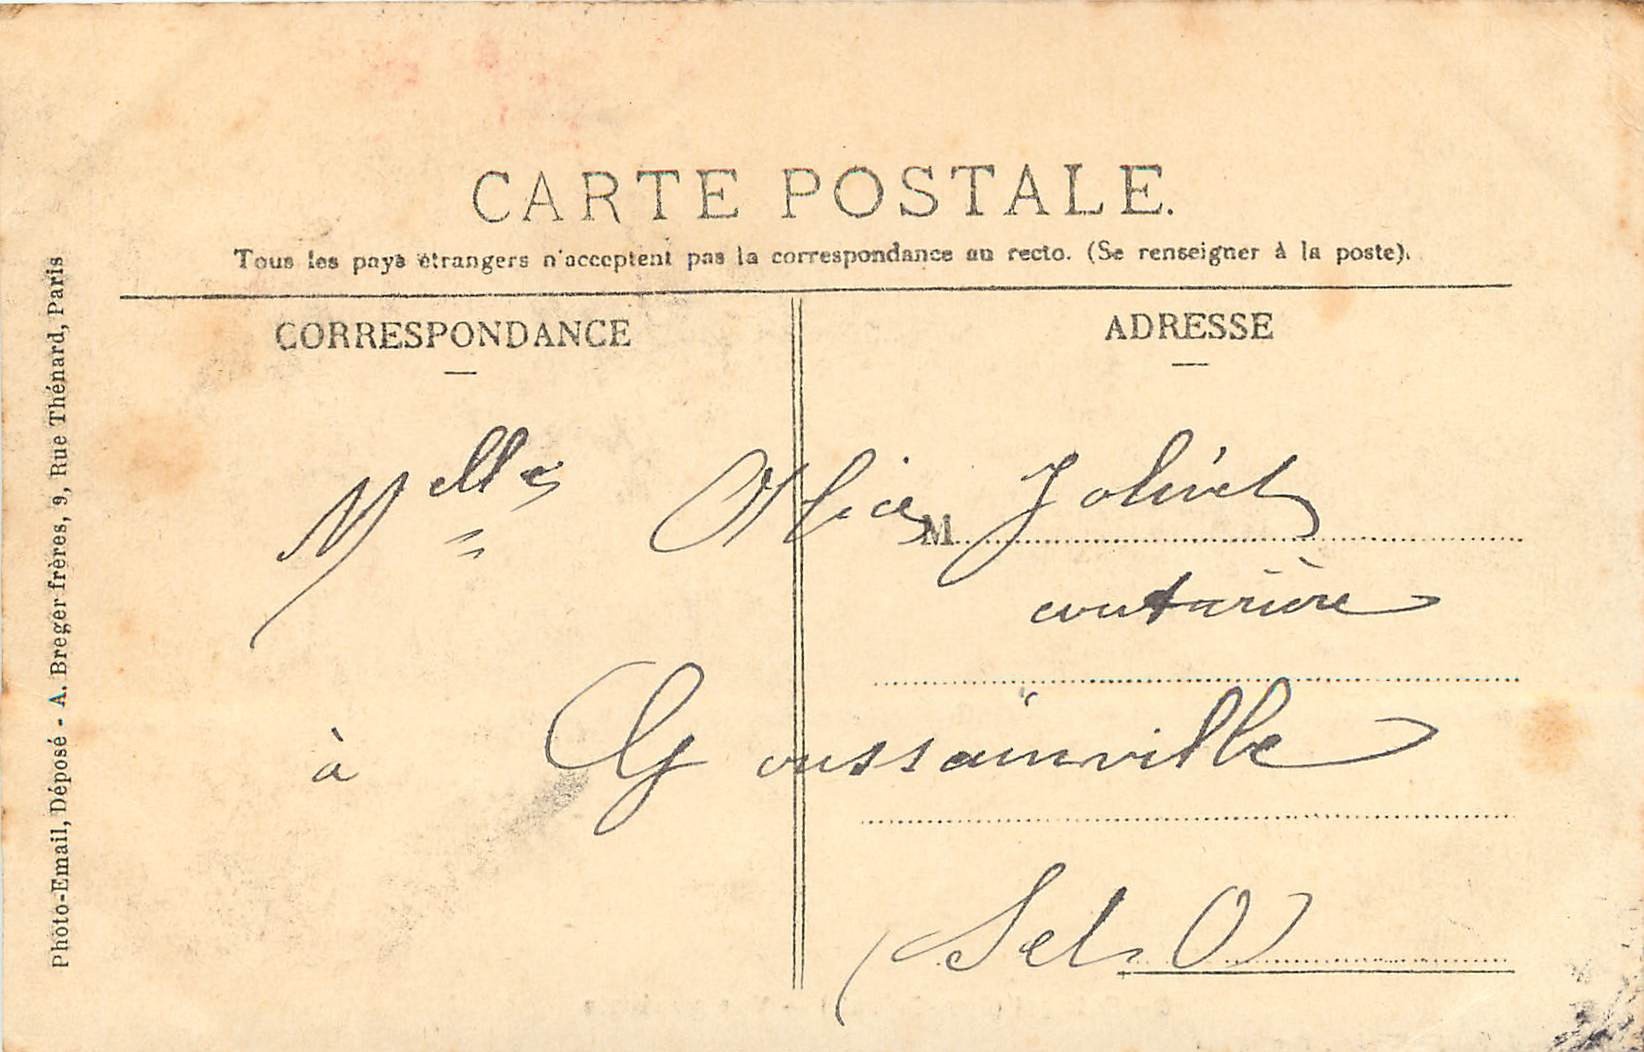 CARTE POSTALE.
Tous les pays étrangers n'acceptent pas la correspondance au recto. (Se renseigner à la poste).
CORRESPONDANCE
ADRESSE
Melle Alice Jolivet
M
couturière
à Goussainville
(S et O)
Photo-Email, Déposé - A. Breger frères, 9, Rue Thénard, Paris